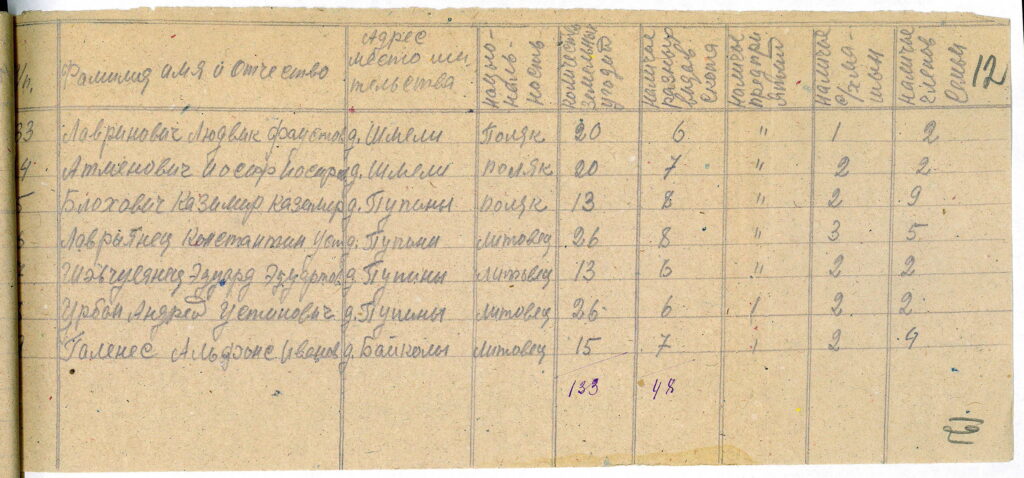 /п. Фамилия имя и отчество Адрес место жительства национальность количеств земельных угодий наличие разных видов скота наличие предприятий наличие с/х машин наличие членов семьи 12
33 Лавринович Людвик Фаустов д. Шмели Поляк 20 6 " 1 2
4 Атменович Иосиф Иосиф д. Шмели поляк 20 7 " 2 2
5 Блохович Казимир Казимир д. Пупины поляк 13 8 " 2 9
6 Константин Уст д. Пупины литовец 26 8 " 3 5
Эдуард Эдуардов д. Пупины литовец 13 6 " 2 2
Урбан Андрей Устинович д. Пупины литовец 26 6 " 2 2
Галенес Альфонс Иванов д. Байколы литовец 15 7 " 2 9
133 48